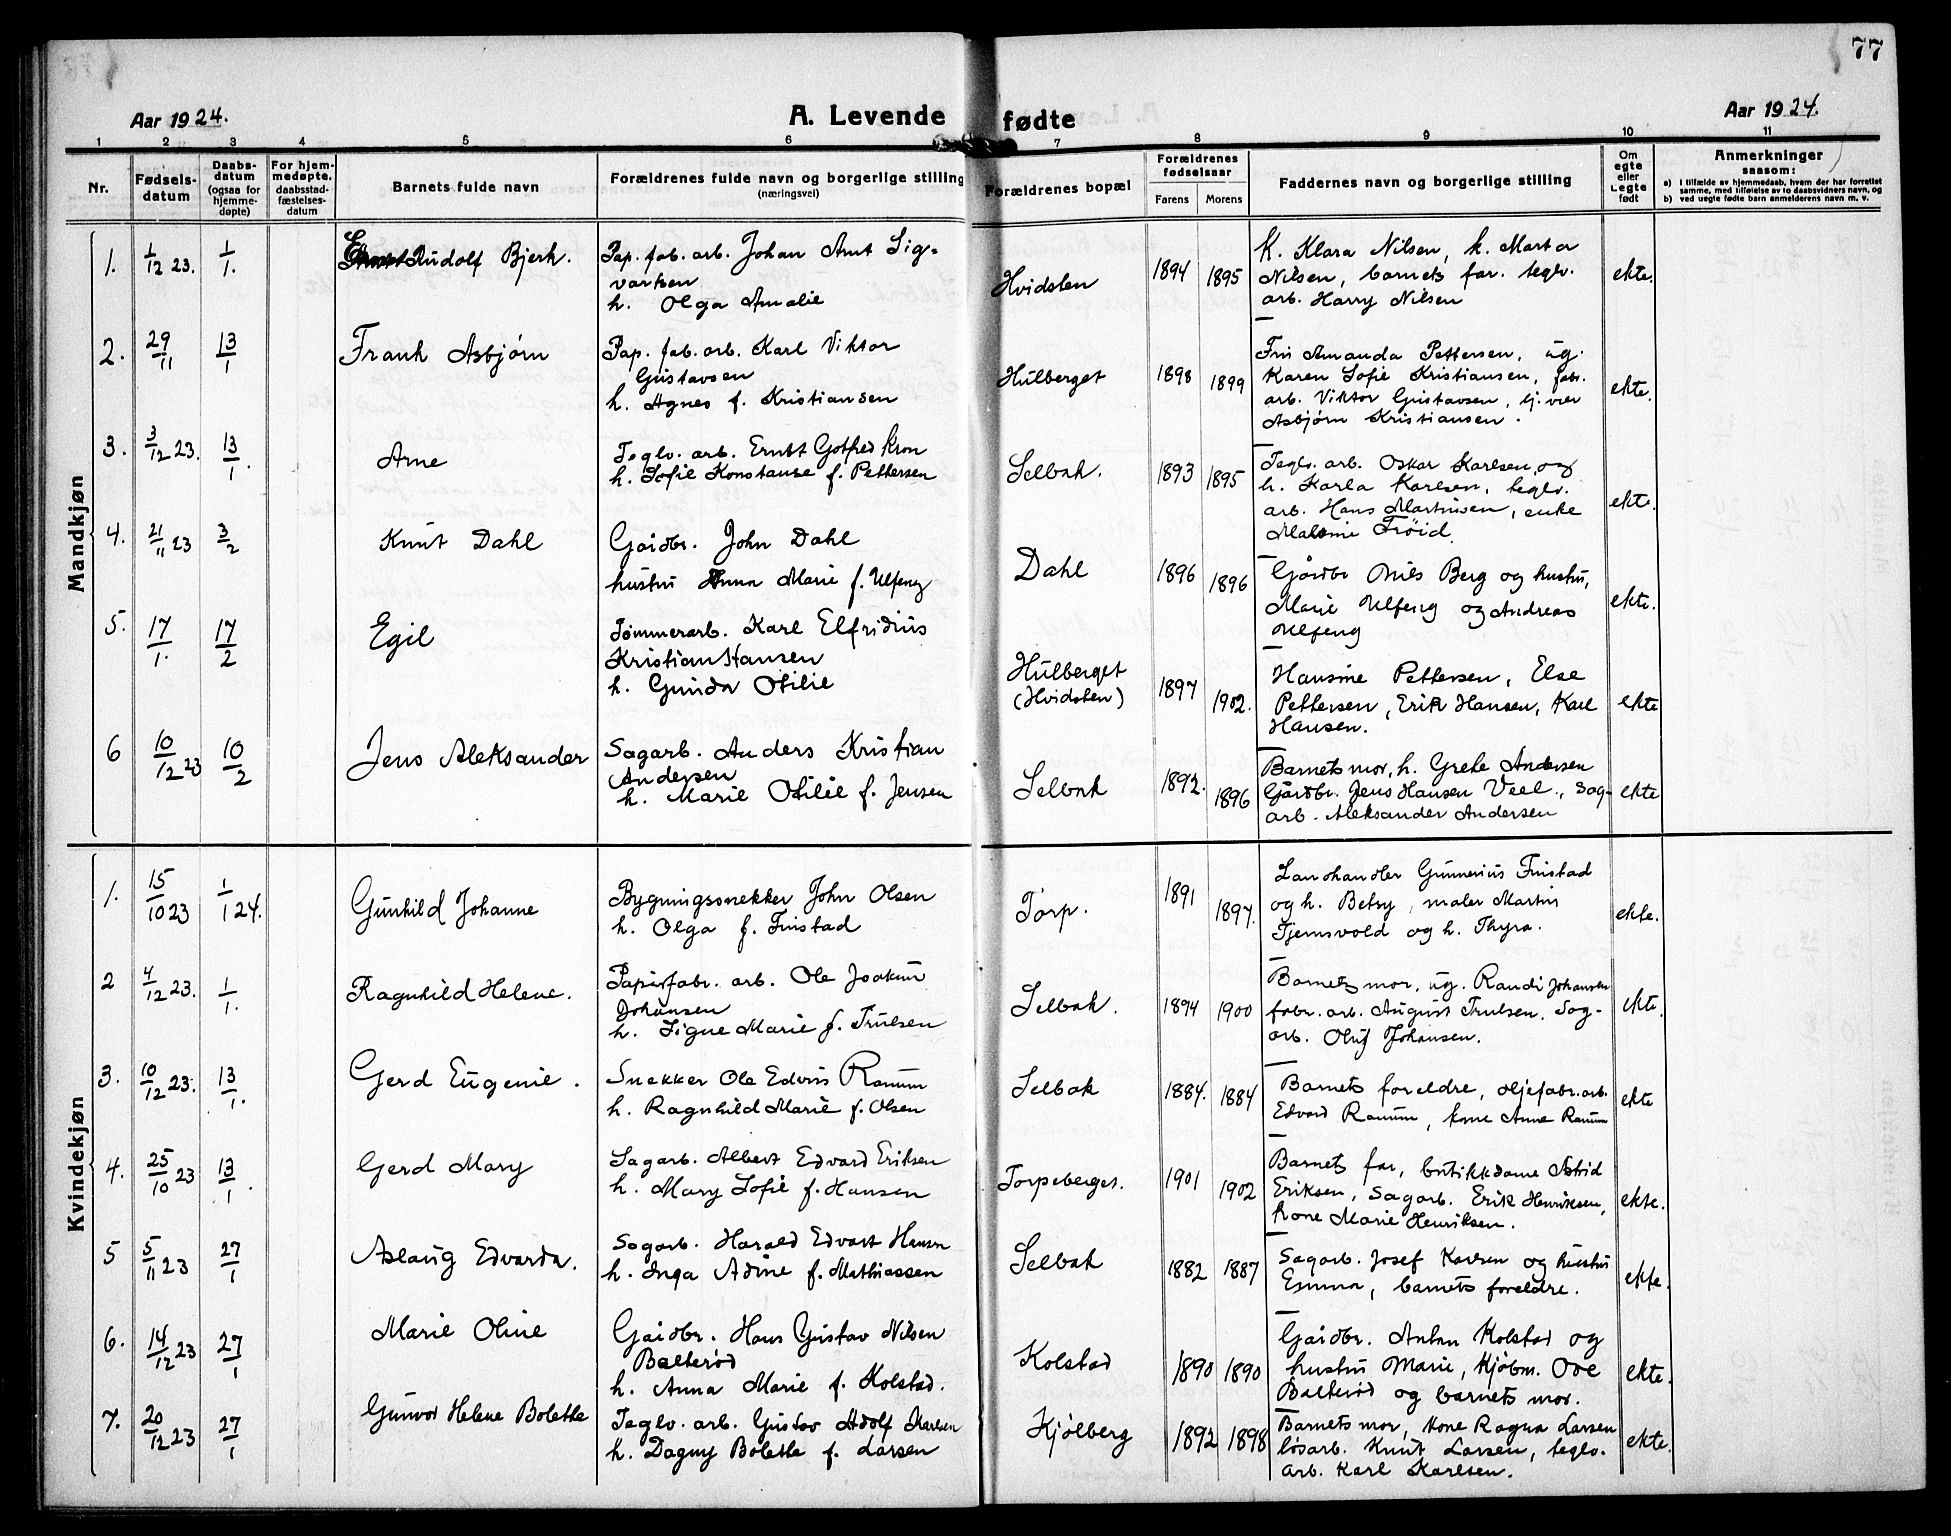 77
Aar 1924.
A. Levende fødte
Aar 1924.
1 2 3 4 5 6 7 8 9 10 11
Nr.
Fødsels-
datum
Daabs-
datum
(ogsaa for
hjemme-
døpte)
For hjem-
medøpte.
daabsstad-
fæstelses-
datum
Barnets fulde navn
Forældrenes fulde navn og borgerlige stilling
(næringsvei)
Forældrenes bopæl
Forældrenes
fødselsaar
Farens Morens
Faddernes navn og borgerlige stilling
Om
egte
eller
uegte
født
Anmerkninger
saasom:
a) I tilfælde av hjemmedaab, hvem der har forrettet
samme, med tilføielse av to daabsvidners navn, og
b) ved uegte fødte barn anmelderens navn m. v.
Mandkjøn
1. 1/12 23. 1/1. Rudolf Bjerk.
Pap. fab. arb. Johan Arnt Sig-
vartsen
h. Olga Amalie
Hvidsten 1894 1895
K. Klara Nilsen, k. Marta
Nilsen, barnets far. teglv.
arb. Harry Nilsen
ekte.
2. 29/11 13/1 Frank Asbjørn
Pap. fab. arb. Karl Viktor
Gustavsen
h. Agnes f. Kristiansen
Hulberget 1898 1899
Fru Amanda Pettersen, ug.
Karen Sofie Kristiansen, fabr.
arb. Viktor Gustavsen,
Asbjørn Kristiansen.
ekte.
3. 3/12 23. 13/1. Arne
Teglv. arb. Ernst Gotfred Kron
h. Sofie Konstanse f. Pettersen
Selbak. 1893 1895
Teglv. arb. Oskar Karlsen, og
h. Karla Karlsen, teglv.
arb. Hans Martinsen, enke
Trøid.
ekte.
4. 21/11 23 3/2 Knut Dahl
Gardbr. John Dahl
hustru Anna Marie f. Ulfeng
Dahl 1896 1896
Gårdbr Nils Berg og hustru,
Marie Ulfeng og Andreas
Ulfeng
ekte.
5. 17/1. 17/2 Egil
Tømmerarb. Karl Elfridius
Kristian Hansen
h. Gunda Otilie
Hulberget
(Hvidsten) 1897 1902.
Hansine Pettersen, Else
Pettersen, Erik Hansen, Karl
Hansen.
ekte
6 10/12 23 10/2 Jens Aleksander
Sagarb. Anders Kristian
Andersen
h. Marie Otilie f. Jensen
Selbak 1892. 1896
Barnets mor, h. Grete Andersen
Gårdbr. Jens Hansen Veel., Sag-
arb. Aleksander Andersen
ekte
Kvindekjøn
1. 15/10 23 1/1 24. Gunhild Johanne
Bygningssnekker John Olsen
h. Olga f. Finstad
Torp. 1891 1897.
Landhandler Gunnerius Finstad
og h. Betsy, maler Martin
Tjernsvold og h. Thyra.
ekte.
2 4/12 23. 1/1. Ragnhild Helene.
Papirfabr. arb. Ole Joakim
Johansen
h. Signe Marie f. Trulsen
Selbak. 1894 1900
Barnets mor, ug. Randi Johansen
fabr. arb. August Trulsen, Sag-
arb. Oluf Johansen.
ekte.
3. 10/12 23. 13/1. Gerd Eugenie.
Snekker Ole Edvin Ranum
h. Ragnhild Marie f. Olsen
Selbak 1884. 1884
Barnets foreldre, oljefabr. arb.
Edvard Ranum, kone Anne Ranum
ekte
4. 25/10 23 13/1. Gerd Mary
Sagarb. Albert Edvard Eriksen
h. Mary Sofie f. Hansen
Torpeberget. 1901 1902
Barnets far, butikkdame Astrid
Eriksen, Sagarb. Erik Henriksen,
kone Marie Henriksen.
ekte.
5 5/11 23 27/1 Aslaug Edvarda.
Sagarb. Harald Edvart Hansen
h. Inga Adine f. Mathiassen
Selbak 1882 1887
Sagarb. Josef Karlsen og hustru
Emma, barnets foreldre.
ekte.
6. 14/12 23 27/1 Marie Oline
Gardbr. Hans Gustav Nilsen
Balterød
h. Anna Marie f. Kolstad.
Kolstad 1890 1890
Gardbr. Anton Kolstad og
hustru Marie, Kjøbm. Ove
Balterød og barnets mor.
ekte.
7. 20/12 23 27/1 Gunvor Helene Bolette
Teglv. arb. Gustav Adolf Karlsen
h. Dagny Bolette f. Larsen
Kjølberg 1892 1898
Barnets mor, kone Ragna Larsen
løsarb. Knut Larsen, teglv.
arb. Karl Karlsen.
ekte.